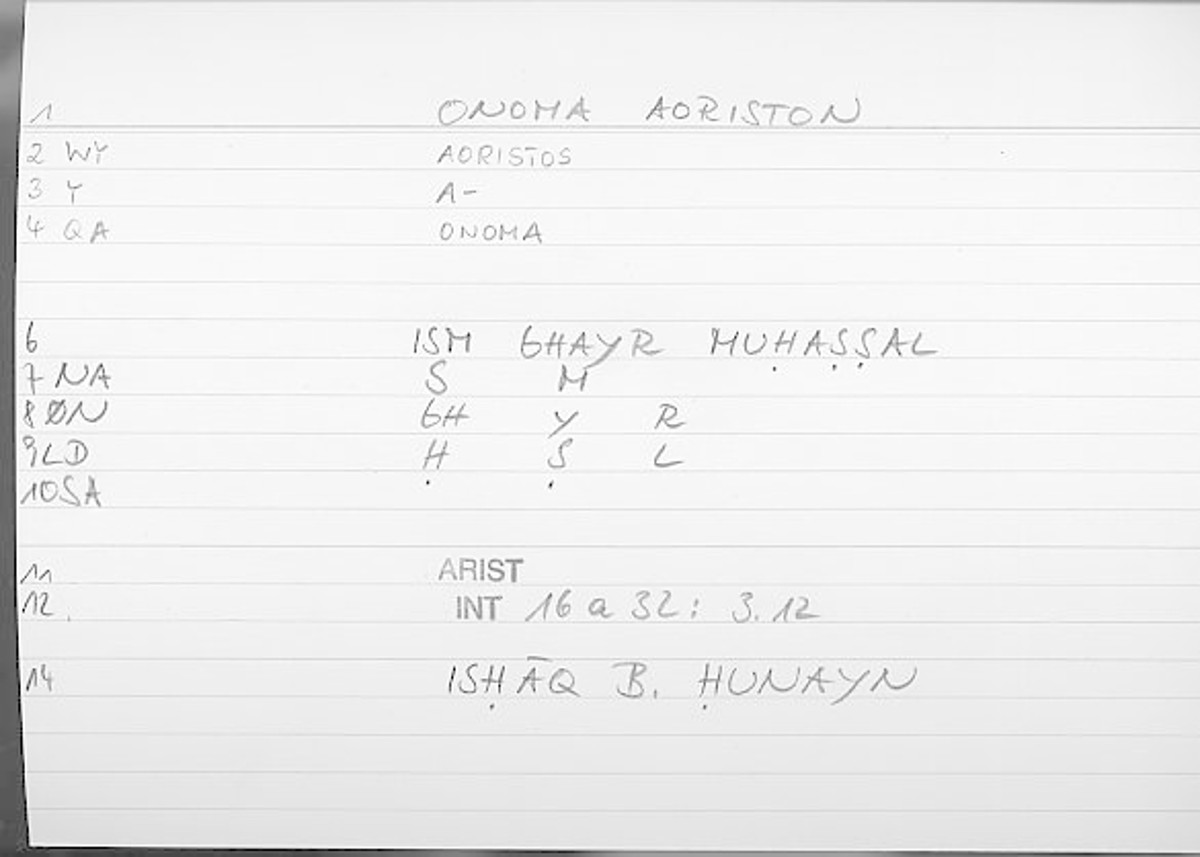 1 ONOMA AORISTON
2 WY AORISTOS
3 Y A-
4 QA ONOMA
6 ISM GHAYR MUḤAṢṢAL
7 NA S M
8 ØN GH Y R
9 LD Ḥ Ṣ L
10 SA
11 ARIST
12. INT 16 a 32: 3.12
14 ISḤĀQ B. ḤUNAYN